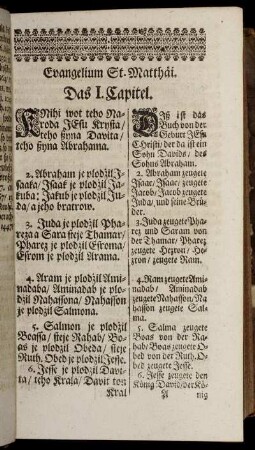 Evangelium St. Matthäi.
Das I. Capitel.
KNihi wot teho Na-
roda JEsu Krysta/
teho ßyna Davita/
teho ßyna Abrahama.
2. Abraham je plodźil J-
saaka/ Jsaak je plodźil Ja-
kuba; Jakub je plodźil Ju-
da/ a jeho bratrow.
3. Juda je plodźil Pha-
reza a Sara steje Thamar/
Pharez je plodźil Esroma/
Esrom je plodźil Arama.
4. Aram je plodźil Ami-
nadaba/ Aminadab je plo-
dźil Nahassona/ Nahasson
je plodźil Salmona.
5. Salmon je plodźil
Boassa/ steje Rahab/ Bo-
as je plodźil Obeda/ steje
Ruth. Obed je plodźil Jesse.
6. Jesse je plodźil Davi-
ta/ teho Krala/ Davit ton
Kral
DIß ist das
Buch von der
Geburt JEsu
Christi/ der da ist ein
Sohn Davids/ des
Sohns Abraham.
2. Abraham zeugete
Jsaac/ Jsaac zeugete
Jacob/ Jacob zeugete
Juda/ und seine Brü-
der.
3. Juda zeugete Pha-
rez und Saram von
der Thamar/ Pharez
zeugete Hezron/ Hez-
ron/ zeugete Ram.
4. Ram zeugete Ami-
nadab/ Aminadab
zeugete Nahasson/ Na-
hasson zeugete Sal-
ma.
5. Salma zeugete
Boas von der Ra-
hab/ Boas zeugete O-
bed von der Ruth. O-
bed zeugete Jesse.
6. Jesse zeugete den
König David/ der Kö-
nig